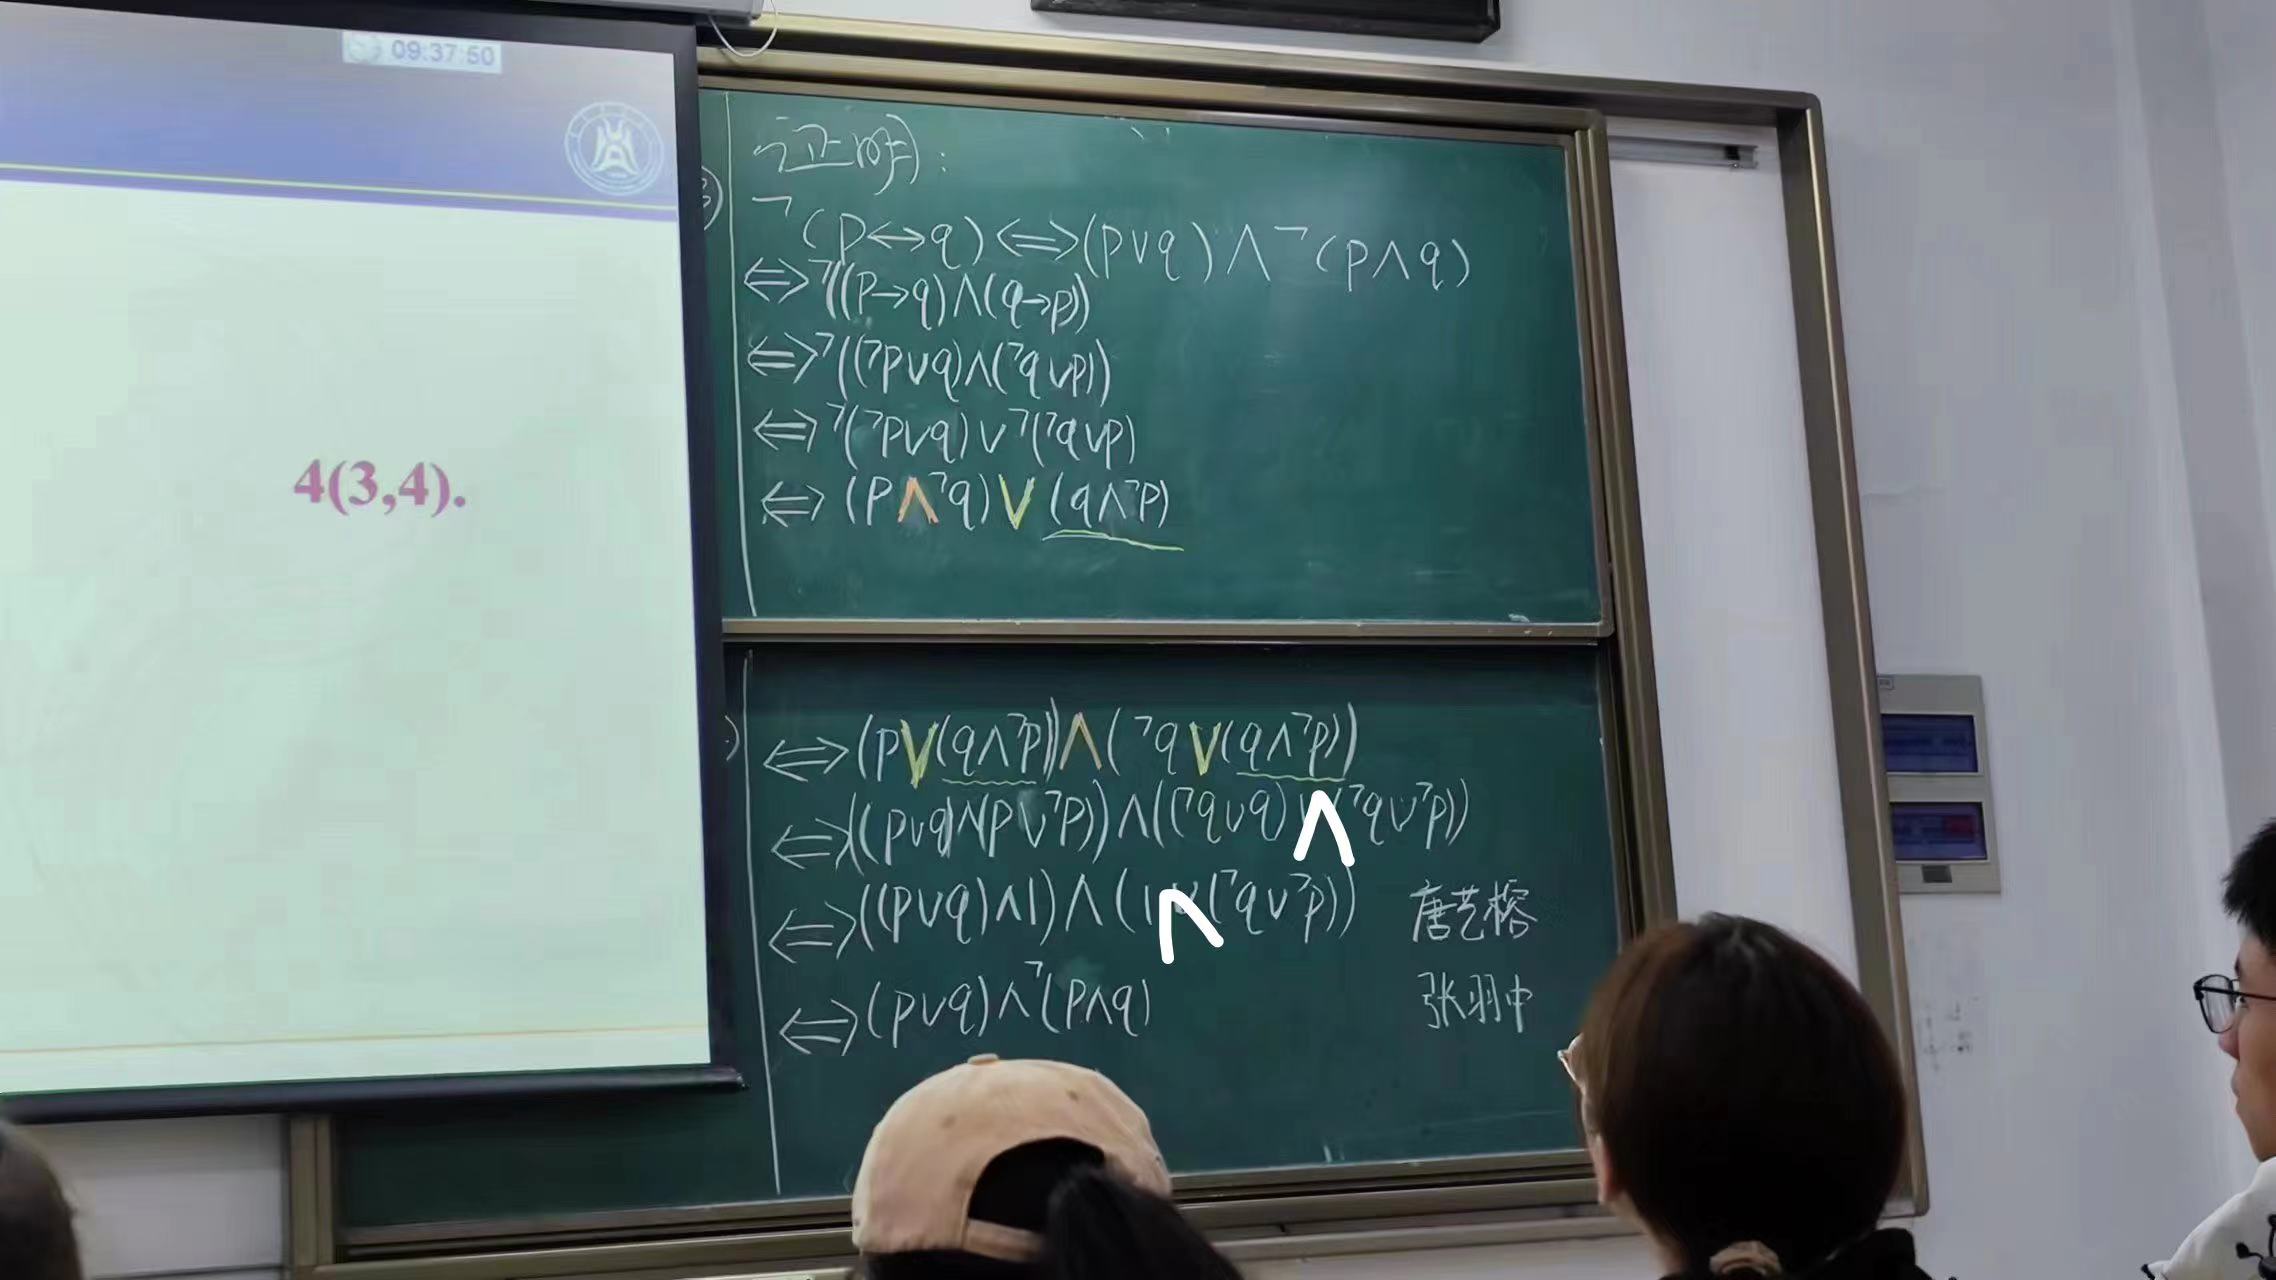 09:37:50
4(3,4).
证明:
¬(p↔q)⇔(p∨q)∧¬(p∧q)
⇔¬((p→q)∧(q→p))
⇔¬((¬p∨q)∧(¬q∨p))
⇔¬(¬p∨q)∨¬(¬q∨p)
⇔(p∧¬q)∨(q∧¬p)
⇔(p∨(q∧¬p))∧(¬q∨(q∧¬p))
⇔((p∨q)∧(p∨¬p))∧((¬q∨q)∧(¬q∨¬p))
⇔((p∨q)∧1)∧(1∧(¬q∨¬p))
⇔(p∨q)∧¬(p∧q)
唐艺榕
张羽中